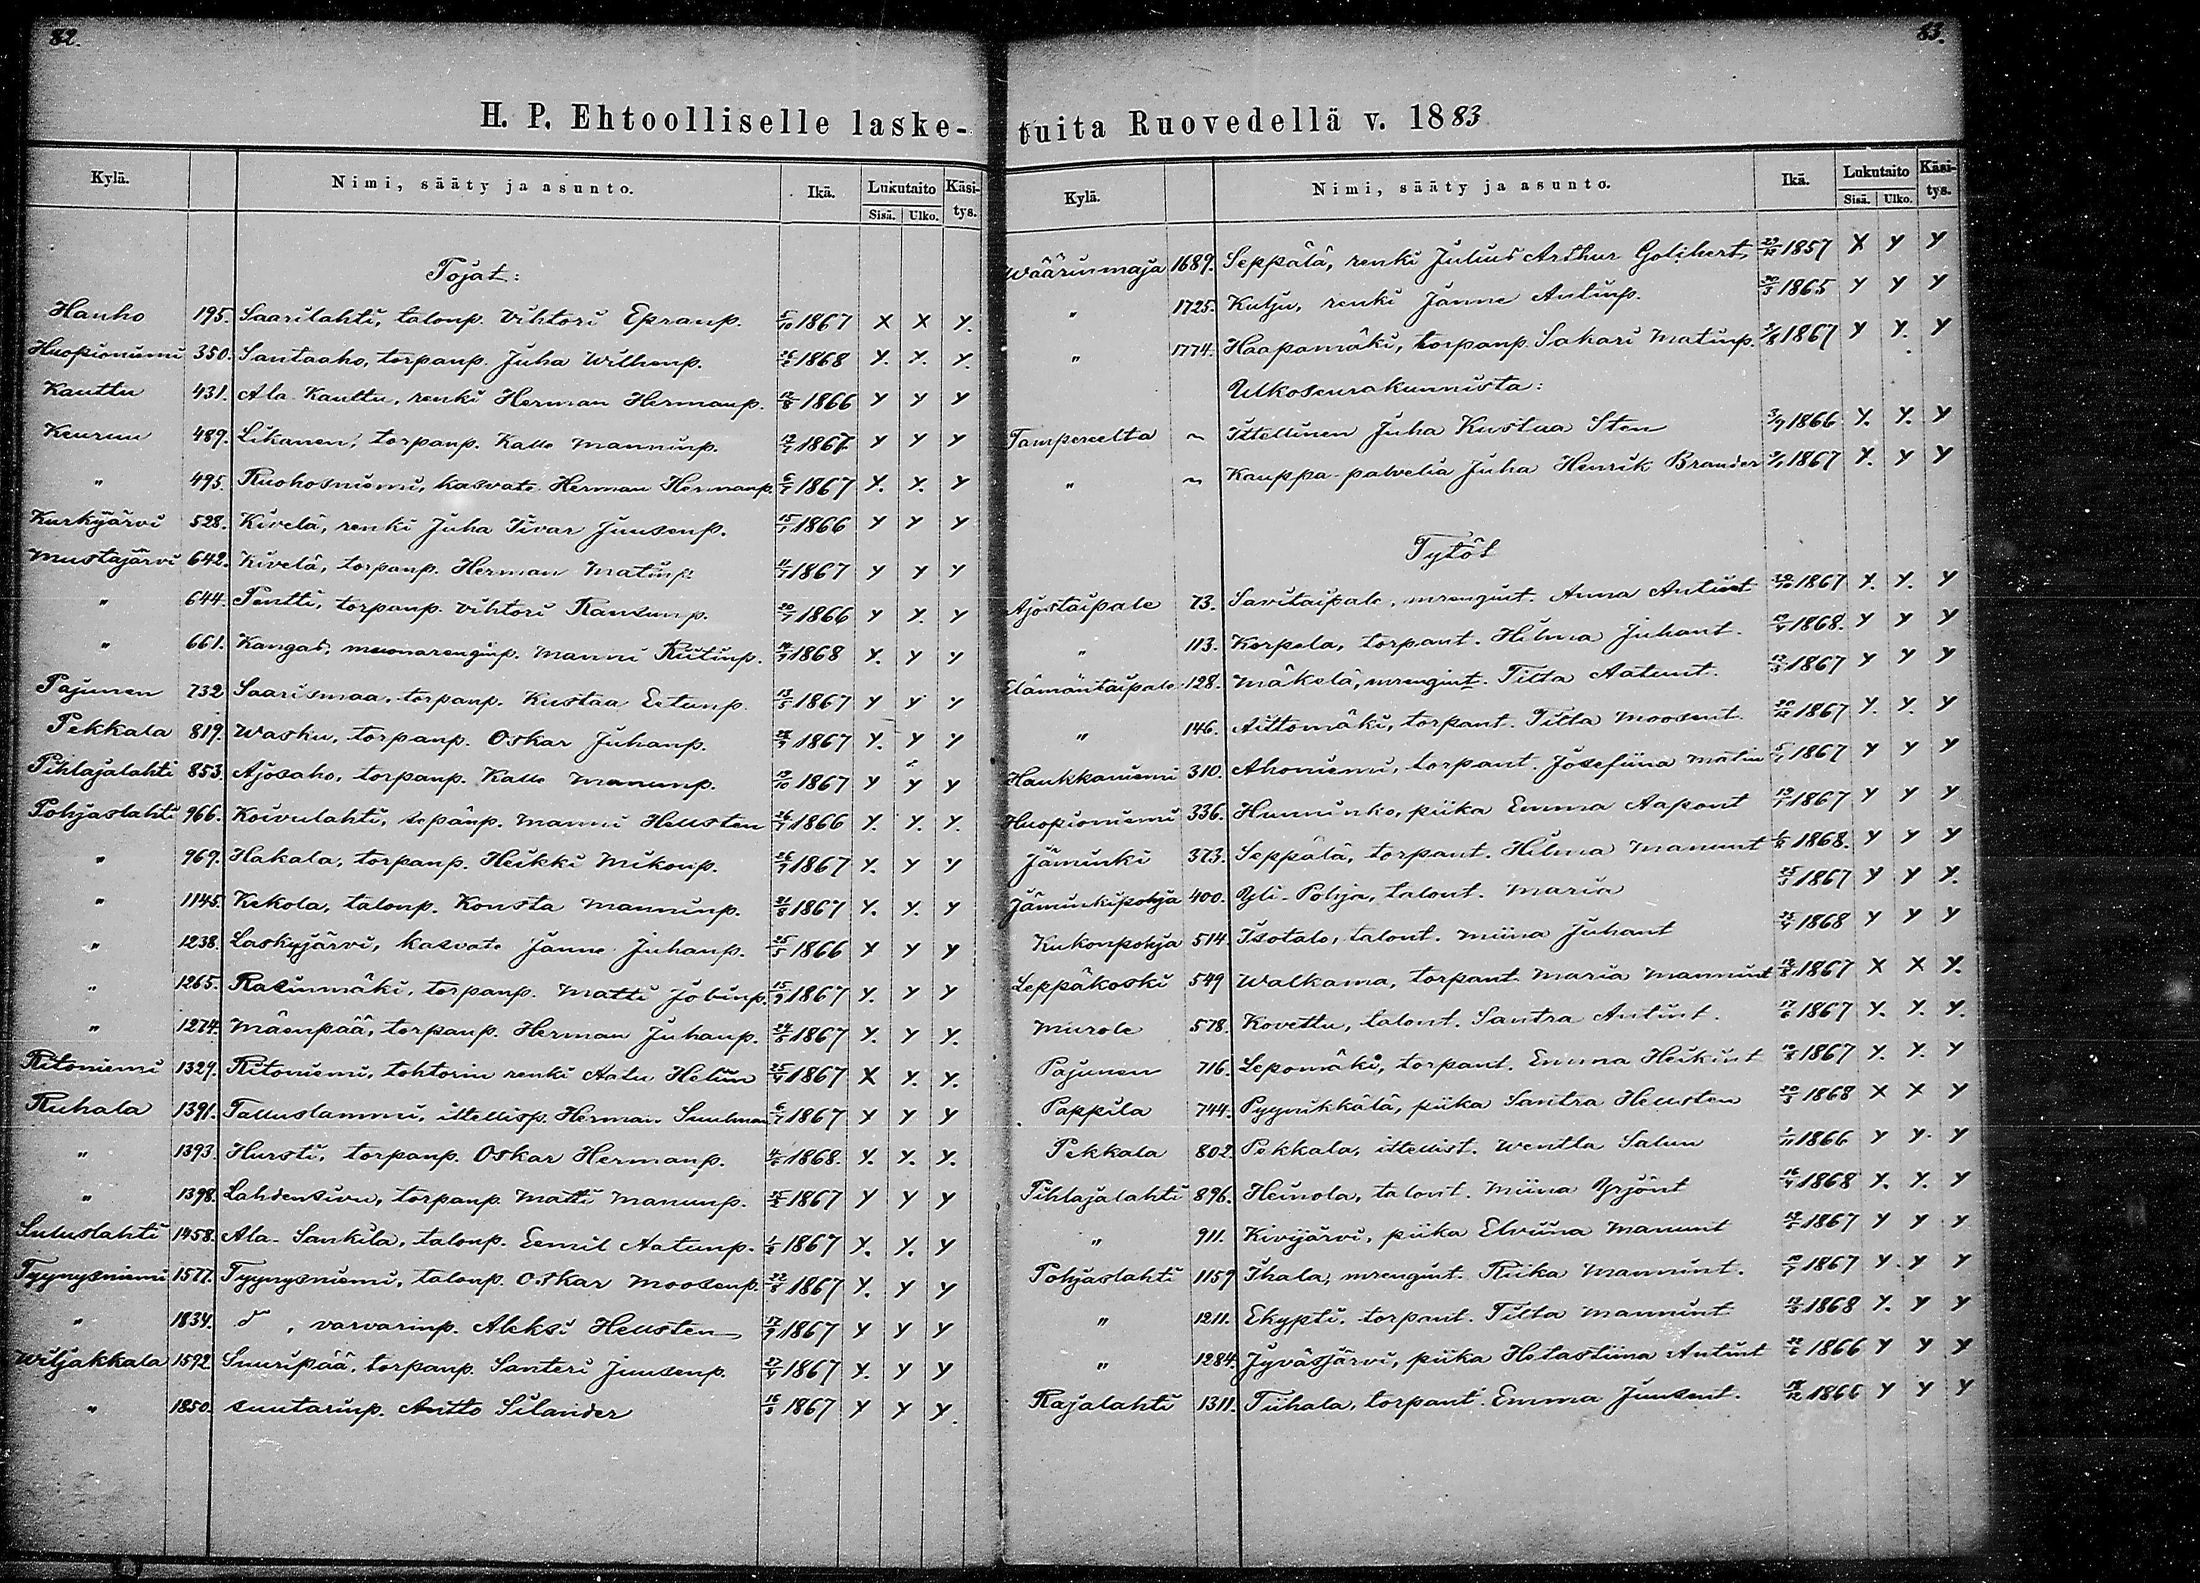 82.
H. P. Ehtoolliselle laske-
Kylä. Nimi, sääty ja asunto. Ikä. Lukutaito Käsi-
Sisä. Ulko. tys.
Pojat:
Hanho 195. Saarilahti, talonp. Vihtori Epranp. 5/10 1867 X X Y.
Huopioniemi 350. Santaaho, torpanp. Juha Willenp. 1868 Y. Y. Y.
Kauttu 431. Ala Kauttu, renki Herman Hermanp. 12/8 1866 Y Y Y
Keuruu 489. Likanen, torpanp. Kalle Manninp. 1867 Y Y Y
" 495. Ruohosniemi, kasvate Herman Hermanp. 6/7 1867 Y. Y. Y
Kurkijärvi 528. Kivelä, renki Juha Iivar Juusenp. 1866 Y Y Y
Mustajärvi 642. Kivelä, torpanp. Herman Matinp. 1867 Y Y Y
" 644. Pentti, torpanp. Vihtori Ransunp. 1866 Y Y. Y
" 661. Kangas, muonarenginp. Manni Kutinp. 1868 Y. Y Y
Pajunen 732 Saarismaa, torpanp. Kustaa Eetunp. 13/5 1867 Y Y Y
Pekkala 819. Wasku, torpanp. Oskar Juhanp. 1867 Y. Y Y
Pihlajalahti 853. Ajosaho, torpanp. Kalle Manunp. 1867 Y Y Y
Pohjaslahti 966. Koivulahti, sepänp. Manni Hellsten 1866 Y. Y. Y.
" 969. Hakala, torpanp. Heikki Mikonp. 1867 Y. Y Y
" 1145. Kekola, talonp. Konsta Manninp. 21/8 1867 Y. Y. Y
" 1238. Laskyjärvi, kasvate Janne Juhanp. 25/5 1866 X Y Y
" 1265. Rasinmäki, torpanp. Matti Jobinp. 15/9 1867 Y. Y Y
" 1274. Mäenpää, torpanp. Herman Juhanp. 1867 Y. Y Y.
Ritoniemi 1329. Ritoniemi, tohtorin renki Aatu Helin 1867 X Y. Y.
Ruhala 1391. Talluslammi, itellisp. Herman Suulman 6/7 1867 Y Y Y
" 1393. Hursti, torpanp. Oskar Hermanp. 1868. Y. Y. Y.
" 1398. Lahdensivu, torpanp. Matti Manunp. 1867 Y Y Y
Suluslahti 1458. Ala-Sankila, talonp. Eemil Aatunp. 1867 Y. Y. Y
Tyynysniemi 1577. Tyynysniemi, talonp. Oskar Moosenp. 1867 Y. Y Y
" 1834. d , varvarinp. Aleksi Hellsten 17/9 1867 Y Y Y
Wiljakkala 1592. Suuripää, torpanp. Santeri Juusenp. 1867 Y. Y Y
" 1850. suutarinp. Antto Silander 1867 Y Y Y.
83.
tuita Ruovedellä v. 1883
Kylä. Nimi, sääty ja asunto. Ikä. Lukutaito Käsi-
Sisä. Ulko. tys.
Wäärinmaja 1689. Seppälä, renki Julius Arthur 1857 X Y Y
" 1725. Kulju, renki Janne Antinp. 1865 Y Y Y
" 1774. Haapamäki, torpanp. Sakari Matinp. 1867 Y Y. Y
Ulkoseurakunnista:
Tampereelta ~ Itellinen Juha Kustaa Sten 3/9 1866 Y. Y. Y
" ~ Kauppa-palvelia Juha Henrik Brander 1867 Y. Y Y
Tytöt
Ajostaipale 73. Savitaipale, mrengint. Anna Antint 1867 Y. Y. Y
" 113. Korpela, torpant. Hilma Juhant. 1868. Y Y Y
Elämäntaipale 128. Mäkelä, mrengint. Tilta Aatunt. 1867 Y Y Y
" 146. Aittomäki, torpant. Tilta Moosent. 1867 Y. Y. Y
Haukkaniemi 310. Ahoniemi, torpant. Josefiina Matin 1867 Y Y Y
Huopioniemi 336. Hunninko, piika Emma Aapont 1867 Y Y Y
Jäminki 373. Seppälä, torpant. Hilma Manunt 1868. Y Y Y
Jäminkipohja 400. Yli-Pohja, talont. Maria 1867 Y Y Y.
Kukonpohja 514. Isotalo, talont. Miina Juhant 1868 Y Y Y
Leppäkoski 549 Walkama, torpant. Maria Mannint 1867 X X Y.
Murole 578. Kovettu, talont. Santra Antint. 17/6 1867 Y. Y. Y.
Pajunen 716. Lepomäki, torpant. Emma Heikint 1867 Y. Y. Y
Pappila 744. Pyynikkälä, piika Santra Hellsten 1868 X X Y
Pekkala 802. Pekkala, itellist. Wentla Salun 1/11 1866 Y Y. Y
Pihlajalahti 896. Heinola, talont. Miina Yrjönt 1868 Y. Y. Y
" 911. Kivijärvi, piika Elviina Manunt 1867 Y Y Y
Pohjaslahti 1159 Ihala, mrengint. Riika Mannint. 1867 Y. Y Y
" 1211. Ekypti, torpant. Tilta Mannint 1868 Y. Y Y
" 1284. Jyväsjärvi, piika Hetastiina Antint 1866 Y Y Y
Rajalahti 1311. Tiihala, torpant. Emma Juusent. 1866 Y Y Y